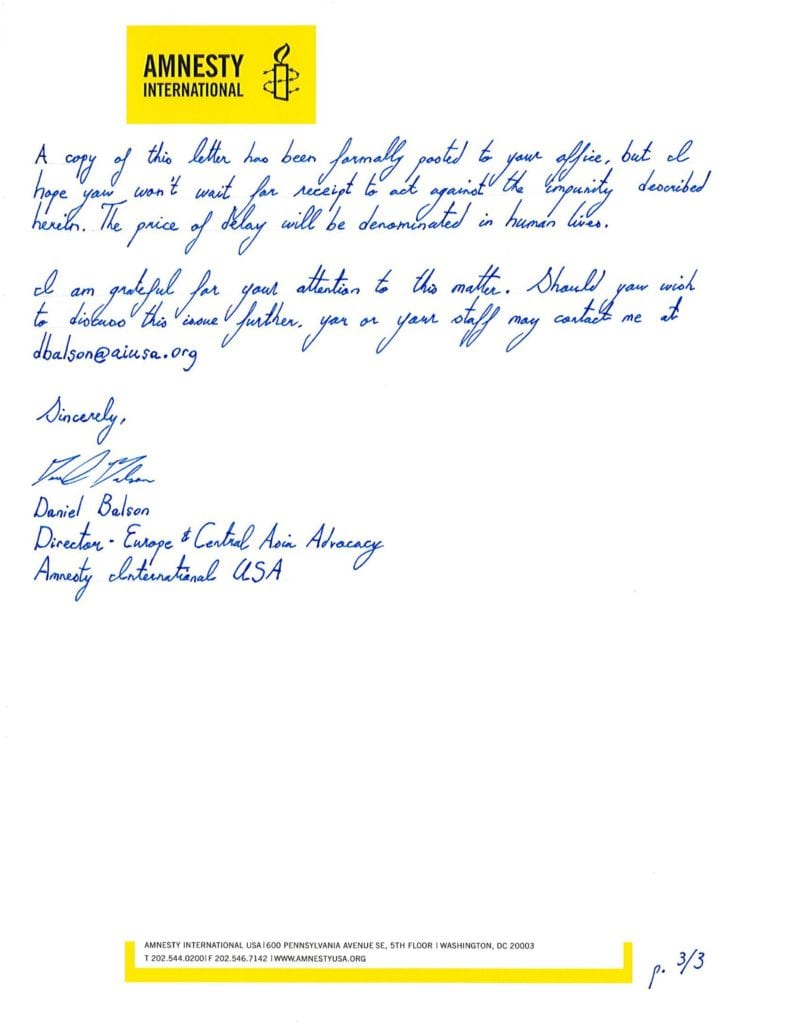 AMNESTY
INTERNATIONAL
A copy of this letter has been formally posted to your office, but I
hope you won't wait for receipt to act against the impunity described
herein. The price of delay will be denominated in human lives.
I am grateful for your attention to this matter. Should you wish
to discuss this issue further, you or your staff may contact me at
dbalson@aiusa.org
Sincerely,
Daniel Balson
Daniel Balson
Director - Europe & Central Asia Advocacy
Amnesty International USA
AMNESTY INTERNATIONAL USA | 600 PENNSYLVANIA AVENUE SE, 5TH FLOOR | WASHINGTON, DC 20003
T 202.544.0200 | F 202.546.7142 | WWW.AMNESTYUSA.ORG
p. 3/3